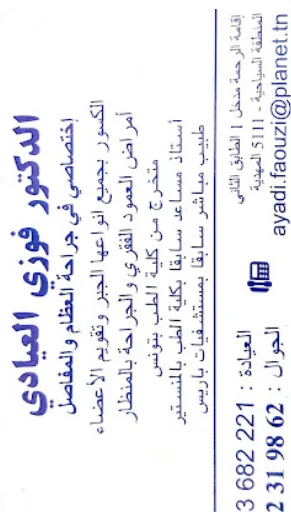 الدكتور فوزي العيادي
إختصاصي في جراحة العظام والمفاصل
الكسور بجميع انواعها الجبر وتقويم الأعضاء
أمراض العمود الفقري والجراحة بالمنظار
متخرج من كلية الطب بتونس
أستاذ مساعد سابقا بكلية الطب بالمنستير
طبيب مباشر سابقا بمستشفيات باريس
العيادة : 221 682 3
الجوال : 62 98 31 2
إقامة الرحمة مدخل 1 الطابق الثاني
المنطقة السياحية - 5111 المهدية
ayadi.faouzi@planet.tn